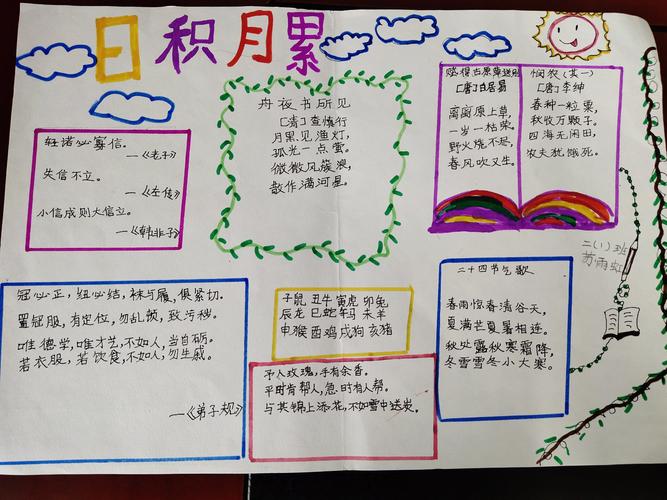 日积月累
轻诺必寡信。
—《老子》
失信不立。
—《左传》
小信成则大信立。
—《韩非子》
舟夜书所见
[清]查慎行
月黑见渔灯,
孤光一点萤。
微微风簇浪,
散作满河星。
赋得古原草送别
[唐]白居易
离离原上草,
一岁一枯荣。
野火烧不尽,
春风吹又生。
悯农(其一)
[唐]李绅
春种一粒粟,
秋收万颗子。
四海无闲田,
农夫犹饿死。
二(1)班
苏雨虹
冠必正,纽必结,袜与履,俱紧切。
置冠服,有定位,勿乱顿,致污秽。
唯德学,唯才艺,不如人,当自砺。
若衣服,若饮食,不如人,勿生戚。
—《弟子规》
子鼠 丑牛 寅虎 卯兔
辰龙 巳蛇 午马 未羊
申猴 酉鸡 戌狗 亥猪
予人玫瑰,手有余香。
平时肯帮人,急时有人帮。
与其锦上添花,不如雪中送炭。
二十四节气歌
春雨惊春清谷天,
夏满芒夏暑相连。
秋处露秋寒霜降,
冬雪雪冬小大寒。